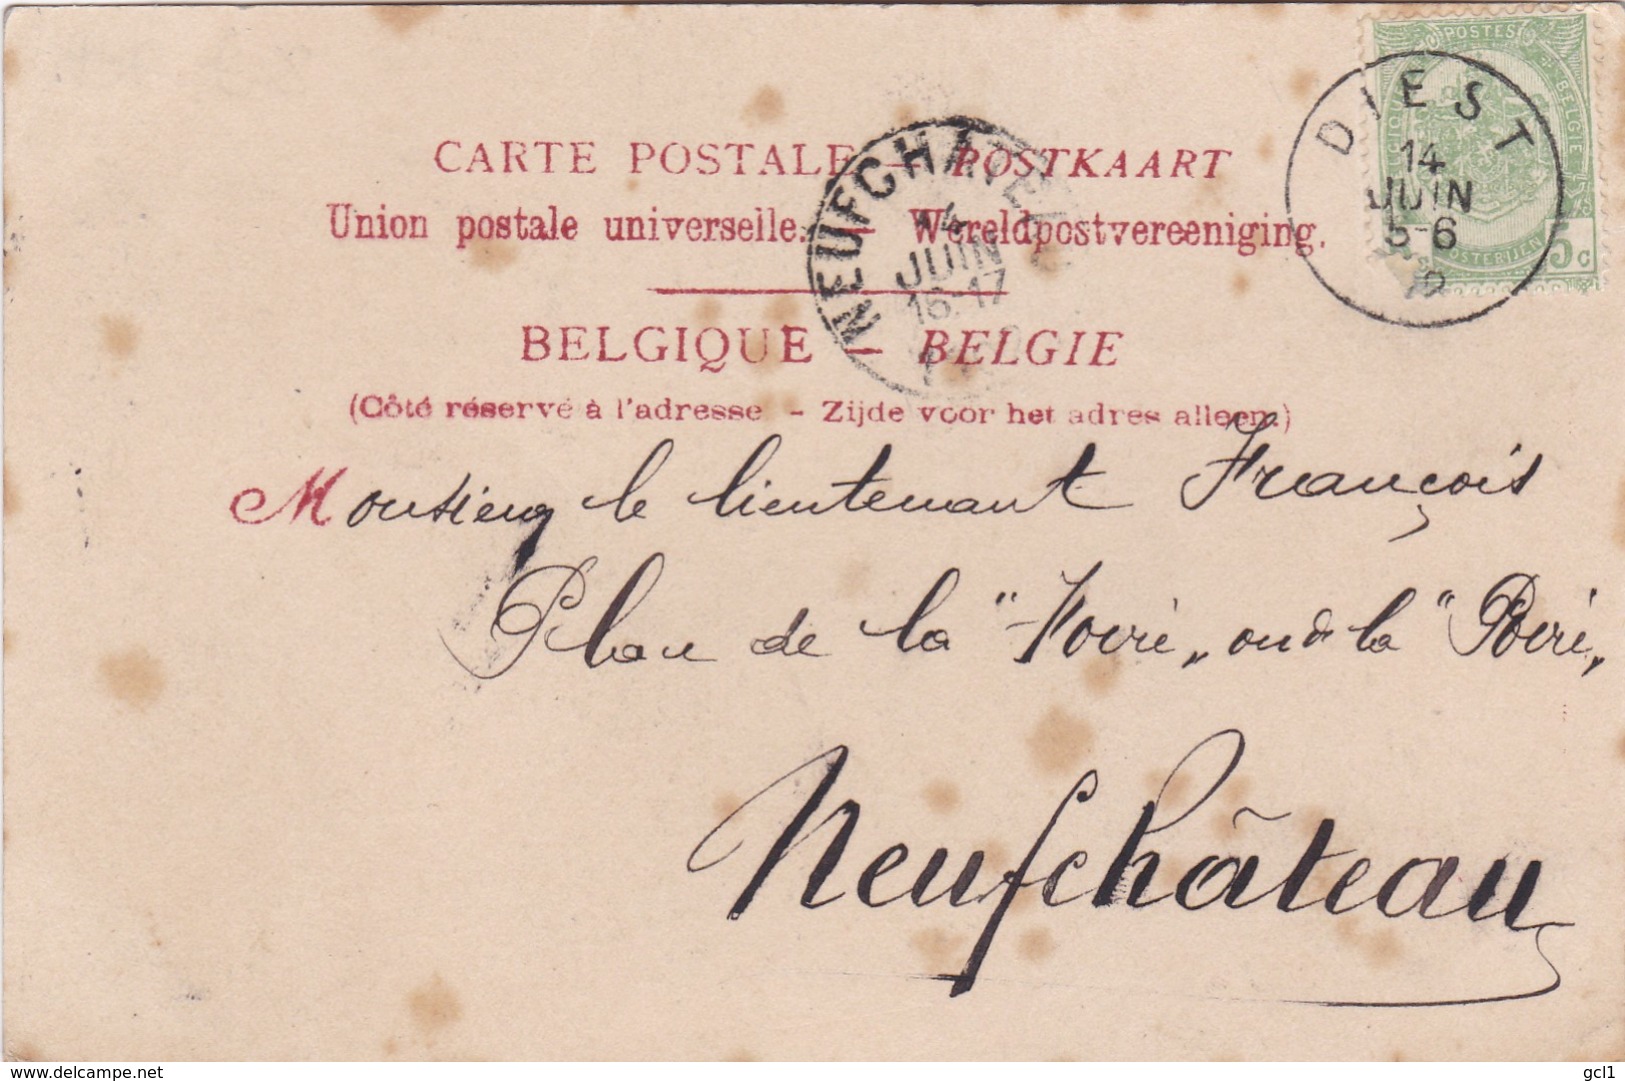 CARTE POSTALE — POSTKAART
Union postale universelle. — Wereldpostvereeniging.
BELGIQUE — BELGIE
(Côté réservé à l'adresse - Zijde voor het adres alleen.)
POSTES
BELGIQUE
BELGIE
POSTERIJEN
5 C
DIEST
14
JUIN
5-6
NEUFCHATEAU
14
JUIN
16-17
Monsieur le lieutenant François
Plan de la "Foire„ ou de la "Poire„
Neufchâteau
delcampe.net
gcl1